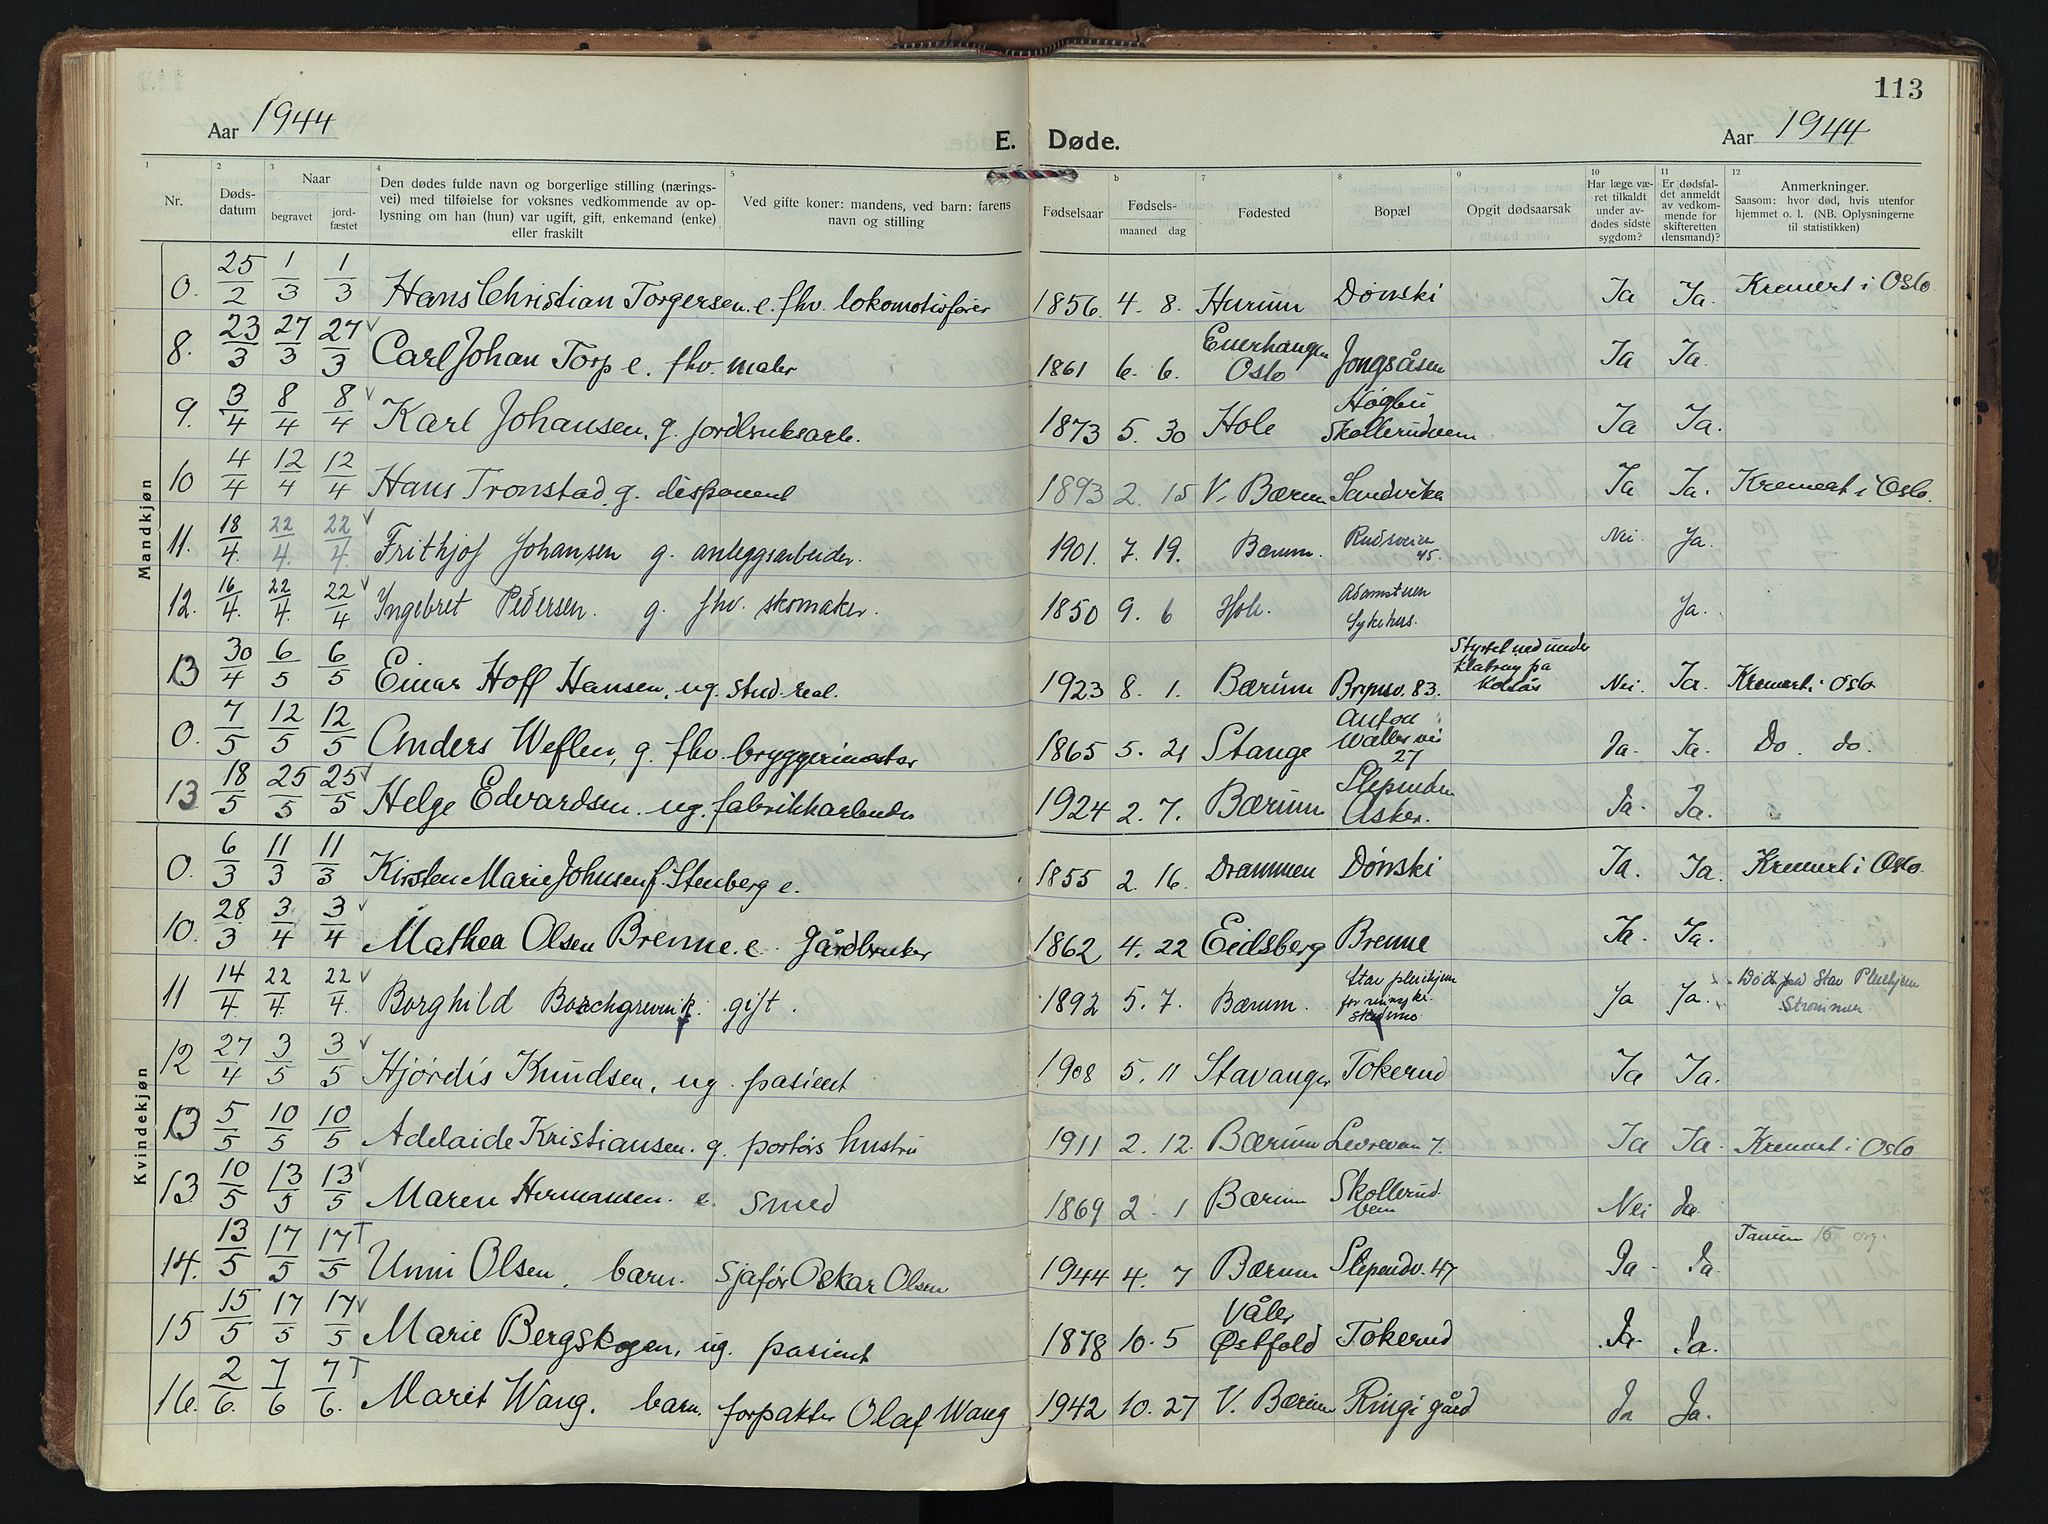 113
Aar 1944
E. Døde.
Aar 1944
1 2 3 4 5 6 7 8 9 10 11 12
Nr. Døds-datum Naar begravet jord-fæstet Den dødes fulde navn og borgerlige stilling (nærings-vei) med tilføielse for voksnes vedkommende av op-lysning om han (hun) var ugift, gift, enkemand (enke) eller fraskilt Ved gifte koner: mandens, ved barn: farens navn og stilling Fødselsaar Fødsels- maaned dag Fødested Bopæl Opgit dødsaarsak Har læge væ-ret tilkaldt under av-dødes sidste sygdom? Er dødsfal-det anmeldt av vedkom-mende for skifteretten (lensmand)? Anmerkninger. Saasom: hvor død, hvis utenfor hjemmet o. l. (NB. Oplysningerne til statistikken)
Mandkjøn
0. 25/2 1/3 1/3 Hans Christian Torgersen. e. fhv. lokomotivfører 1856. 4. 8. Hurum Dønski Ja Ja. Kremert i Oslo
8. 23/3 27/3 27/3 Carl Johan Torp e. fhv. maler 1861 6. 6. Enerhaugen Oslo Jongsåsen Ja Ja.
9. 3/4 8/4 8/4 Karl Johansen, g. jordbruksarb. 1873 5. 30 Hole Høgbu Skollerudveien Ja Ja.
10 4/4 12/4 12/4 Hans Tronstad, g. disponent 1893 2. 15 V. Bærum Sandvika Ja Ja. Kremert i Oslo.
11. 18/4. 22/4. 22/4. Frithjof Johansen g. anleggsarbeider. 1901. 7. 19. Bærum. Rudsveien 45. Nei. Ja.
12. 16/4. 22/4. 22/4 Ingebret Pedersen. g. fhv. skomaker. 1850 9. 6 Hole. Sykehus. Ja.
13 30/4 6/5 6/5 Einar Hoff Hansen, ug. stud. real. 1923 8. 1. Bærum Brynsv. 83. Styrtet ned under klatring på Kolsås Nei. Ja. Kremert i Oslo
0. 7/5 12/5 12/5 Anders Weflen, g. fhv. bryggerimester 1865 5. 21 Stange Anton Walles vei 27 Ja. Ja. Do. do.
13 18/5 25/5 25/5 Helge Edvardsen. ug. fabrikkarbeider 1924 2. 7. Bærum Slependen Asker. Ja. Ja.
Kvindekjøn
0. 6/3 11/3 11/3 Kirsten Marie Johnsen f. Stenberg e. 1855 2. 16. Drammen Dønski Ja. Ja. Kremert i Oslo.
10. 28/3 3/4 3/4 Mathea Olsen Brenne. e. Gårdbruker 1862 4. 22 Eidsberg Brenne Ja. Ja.
11 14/4. 22/4. 22/4. Borghild Borchgrevink. gift. 1892 5. 7. Bærum. Stav pleiehjem Ja Ja. Død på Stav Pleiehjem Strømmen
12 27/4 3/5 3/5 Hjørdis Knudsen, ug. pasient 1908 5. 11 Stavanger Tokerud Ja Ja.
13 5/5 10/5 10/5 Adelaide Kristiansen. g. portørs hustru 1911 2. 12. Bærum Levreveien 7. Ja Ja. Kremert i Oslo
13 10/5 13/5 13/5 Maren Hermansen. e. smed 1869 2. 1 Bærum Skollerud veien Nei Ja
14. 13/5 17/5 17/5 T Unni Olsen, barn. sjafør Oskar Olsen 1944 4. 7 Bærum Slependv. 47 Ja. Ja. Tanum 15. org.
15 15/5 17/5 17/5 Marie Bergskogen, ug. pasient 1878 10. 5 Våler Østfold Tokerud Ja. Ja.
16. 2/6. 7/6 7/6. T Marit Wang. barn. forpakter Olaf Wang 1942 10. 27 V. Bærum Ringi gård Ja Ja.